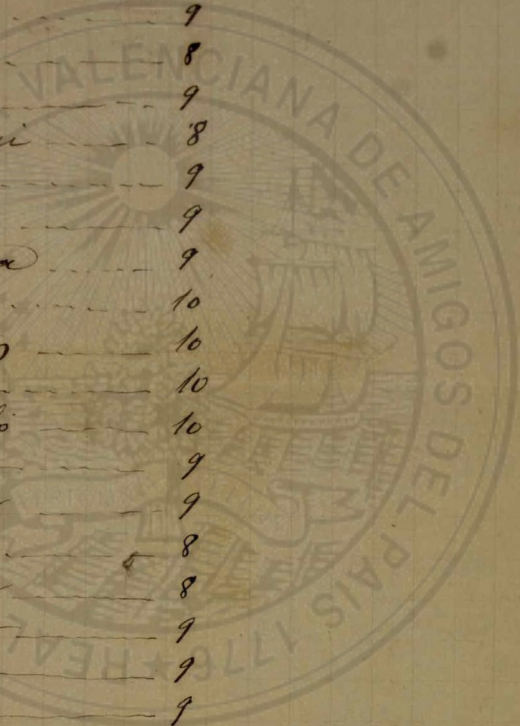 9
8
9
8
9
9
9
10
10
10
10
9
9
8
8
9
9
9
REAL VALENCIANA DE AMIGOS DEL PAIS 1776